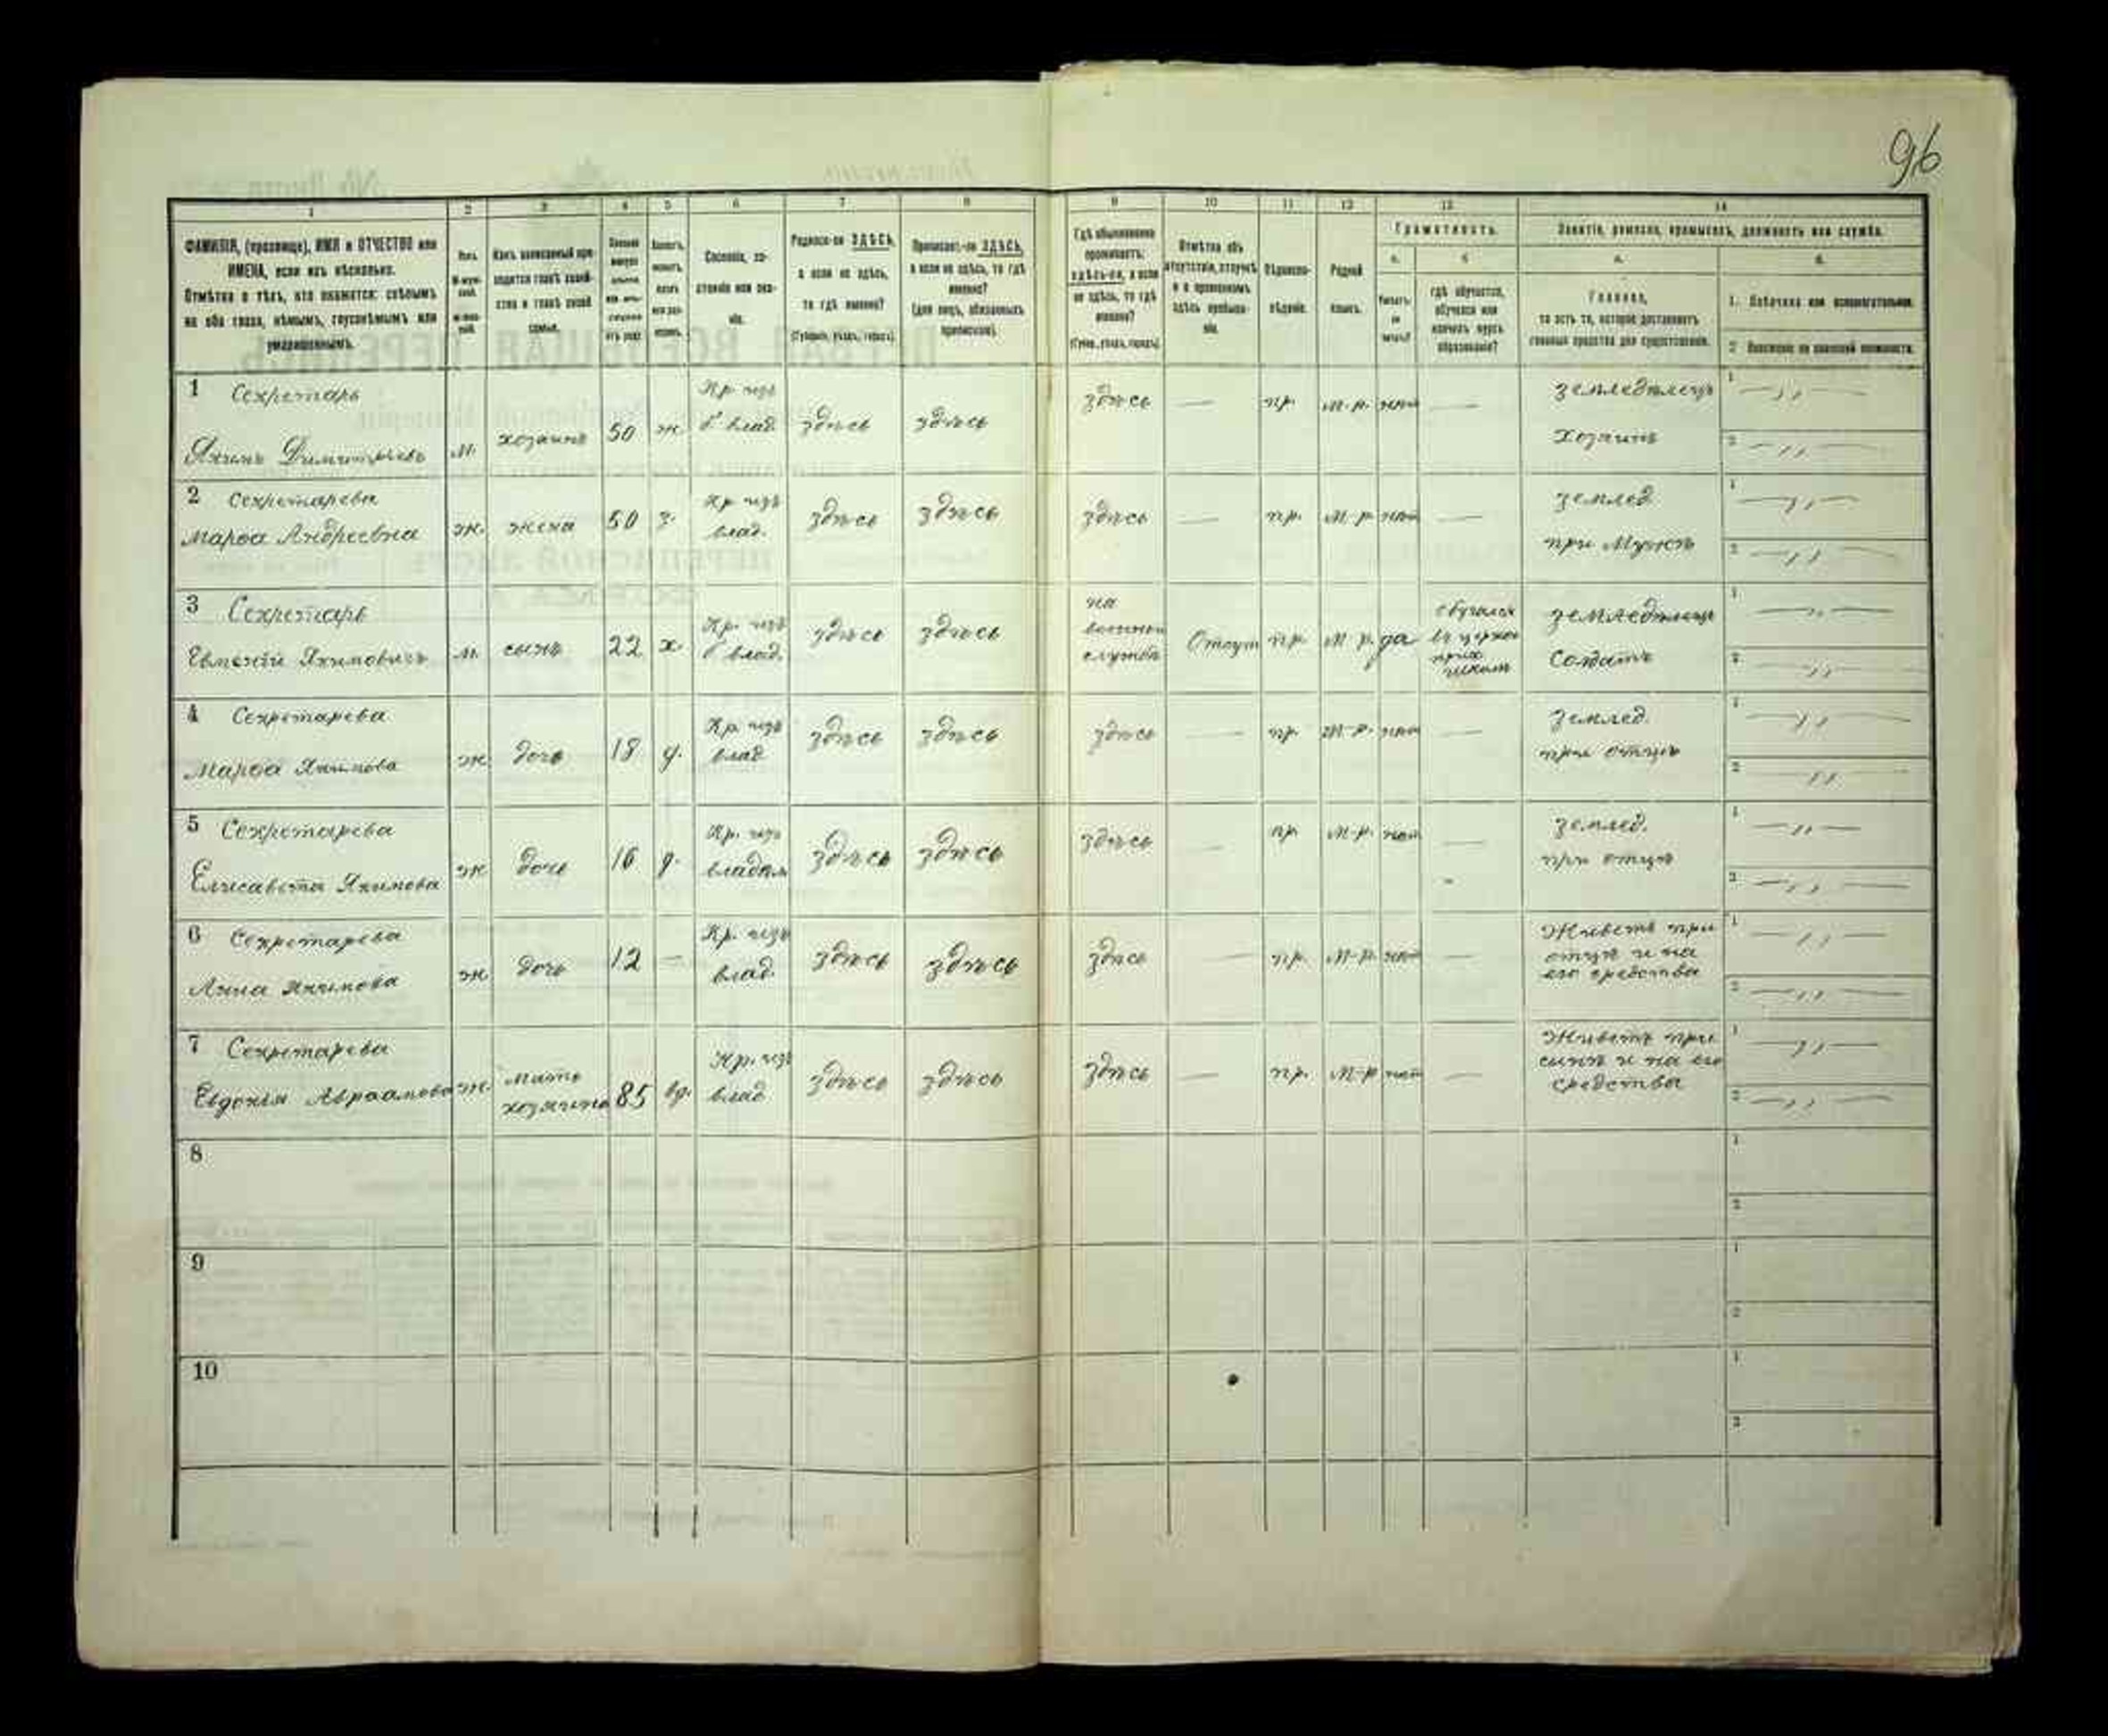 96
1
2
3
4
5
6
7
8
9
10
11
12
13
14
ФАМИЛІЯ, (прозвище), ИМЯ и ОТЧЕСТВО или
ИМЕНА, если ихъ нѣсколько.
Отмѣтка о тѣхъ, кто окажется: слѣпымъ
на оба глаза, нѣмымъ, глухонѣмымъ или
умалишеннымъ.
Полъ.
Какъ записанный при-
ходится главѣ хозяй-
ства и главѣ своей
семьи.
Сословіе, со-
стояніе или зва-
ніе.
Родился-ли ЗДѢСЬ,
а если не здѣсь,
то гдѣ именно?
(Губернія, уѣздъ, городъ).
Приписанъ-ли ЗДѢСЬ,
а если не здѣсь, то гдѣ
именно?
(для лицъ, обязанныхъ
припискою).
Гдѣ обыкновенно
проживаетъ:
здѣсь-ли, а если
не здѣсь, то гдѣ
именно?
(Губ., уѣздъ, городъ).
Отмѣтка объ
отсутствіи, отлучкѣ
и о временномъ
здѣсь пребыва-
ніи.
Вѣроиспо-
вѣданіе.
Родной
языкъ.
Грамотность.
а.
б.
Умѣетъ-
ли
читать?
гдѣ обучается,
обучался или
кончилъ курсъ
образованія?
Занятіе, ремесло, промыселъ, должность или служба.
а.
б.
Главное,
то есть то, которое доставляетъ
главныя средства для существованія.
1. Побочное или вспомогательное.
2. Положеніе по воинской повинности.
1 Секретарь
Якимъ Димитріевъ
м.
хозяинъ
50
ж.
Кр. изъ
б влад
здѣсь
здѣсь
здѣсь
—
пр.
м-р.
нѣт
—
земледѣлецъ
хозяинъ
1 — ,, —
2 — ,, —
2 Секретарева
Марѳа Андреевна
ж.
жена
50
з.
Кр изъ
влад.
здѣсь
здѣсь
здѣсь
—
пр.
м-р
нѣт
—
землед
при Мужѣ
1 — ,, —
2 — ,, —
3 Секретарь
Евменій Якимовичъ
м.
сынъ
22
х.
Кр. изъ
б влад.
здѣсь
здѣсь
на
военной
службѣ
Отсут
пр.
м р.
да
обучался
въ церков
прих
школѣ
земледѣлецъ
Солдатъ
1 — ,, —
2 — ,, —
4 Секретарева
Марѳа Якимова
ж
дочь
18
д.
Кр. изъ
влад
здѣсь
здѣсь
здѣсь
—
пр.
м-р.
нѣт
—
землед.
при отцѣ
1 — ,, —
2 — ,, —
5 Секретарева
Елисавета Якимова
ж
дочь
16
д.
Кр. изъ
владѣл
здѣсь
здѣсь
здѣсь
—
пр.
м-р.
нѣт
—
землед.
при отцѣ
1 — ,, —
2 — ,, —
6 Секретарева
Анна Якимова
ж
дочь
12
—
Кр. изъ
влад.
здѣсь
здѣсь
здѣсь
—
пр.
м-р.
нѣт
—
Живетъ при
отцѣ и на
его средства
1 — ,, —
2 — ,, —
7 Секретарева
Евдокія Авраамова
ж.
мать
хозяина
85
вд.
Кр. изъ
влад
здѣсь
здѣсь
здѣсь
—
пр.
м-р
нѣт
—
Живетъ при
сынѣ и на его
средства
1 — ,, —
2 — ,, —
8
1
2
9
1
2
10
1
2